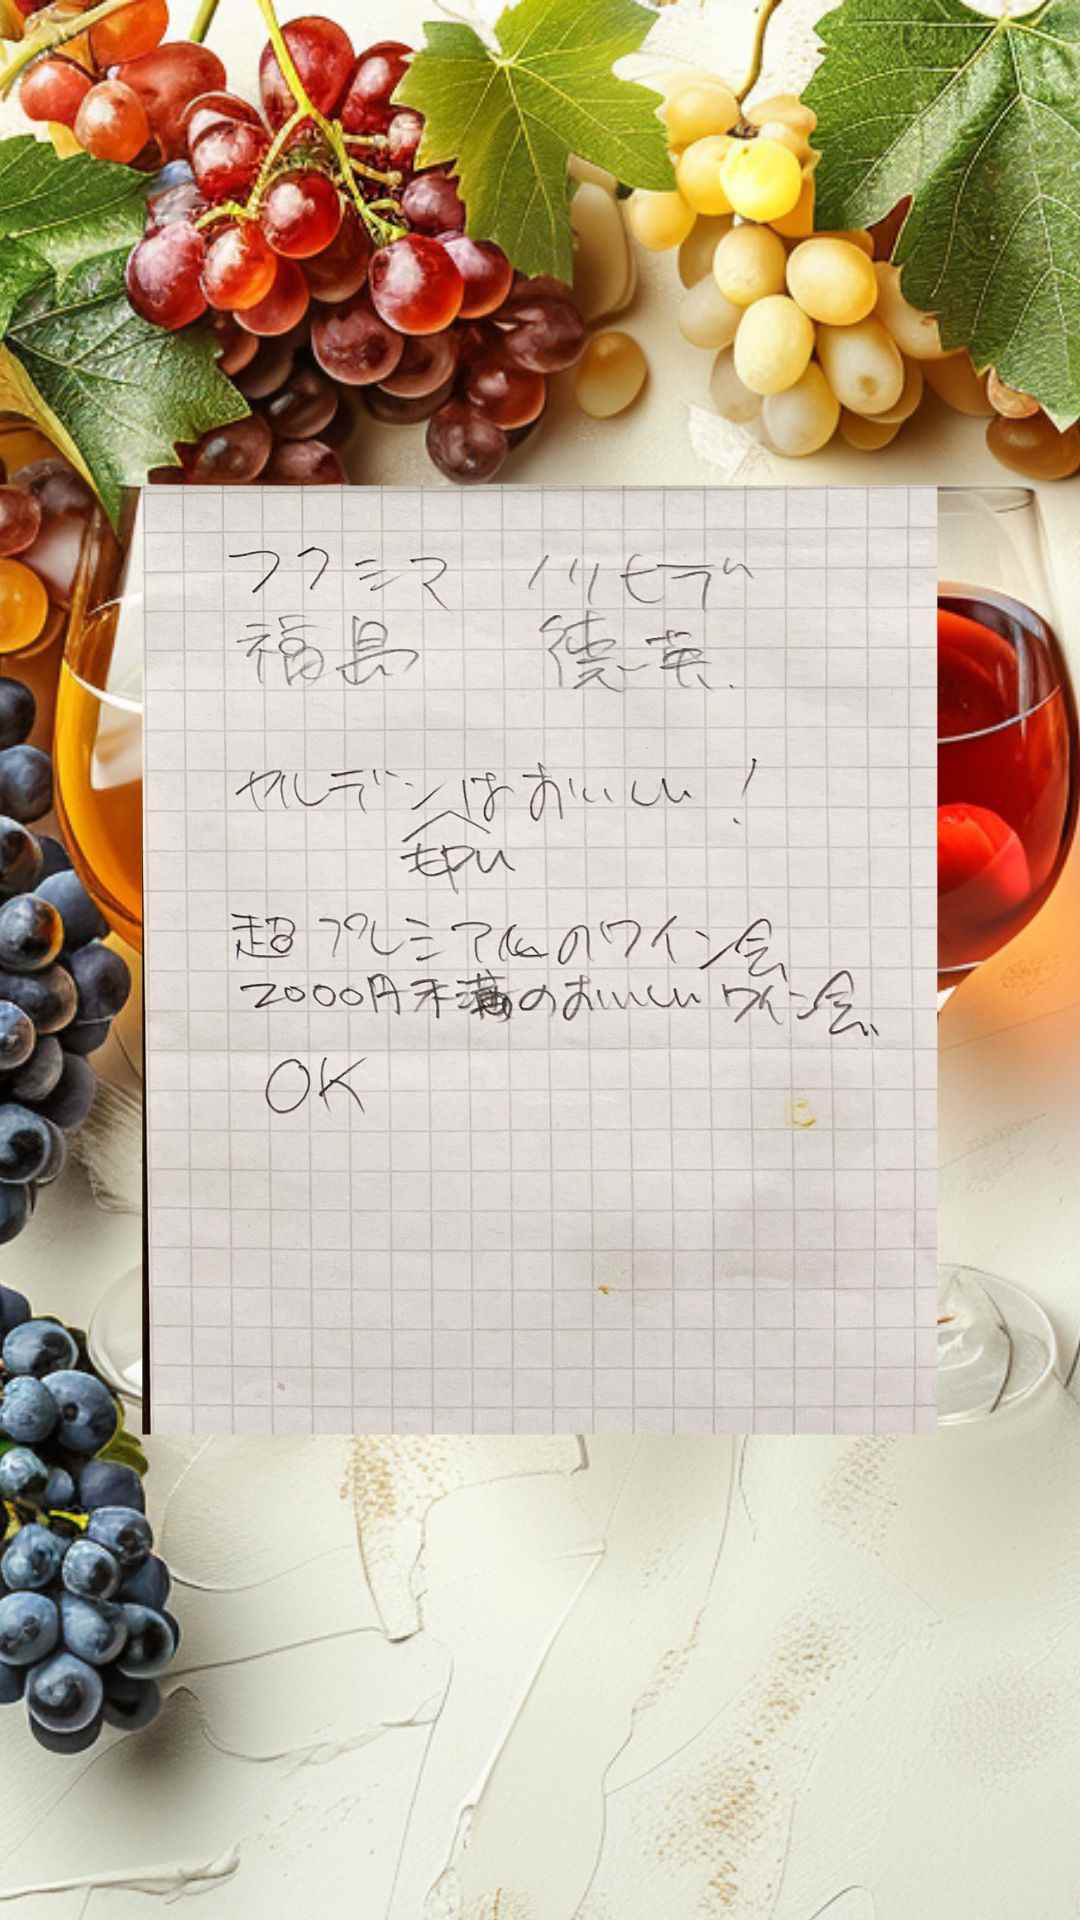 フクシマ ノリヒデ
福島 徳英.
ヤルデンはおいしい!
超プレミアムのワイン会
2000円未満のおいしいワイン会
OK